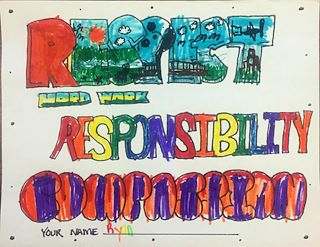 RESPECT
HARD WORK
RESPONSIBILITY
COMPASSION
YOUR NAME Ryan